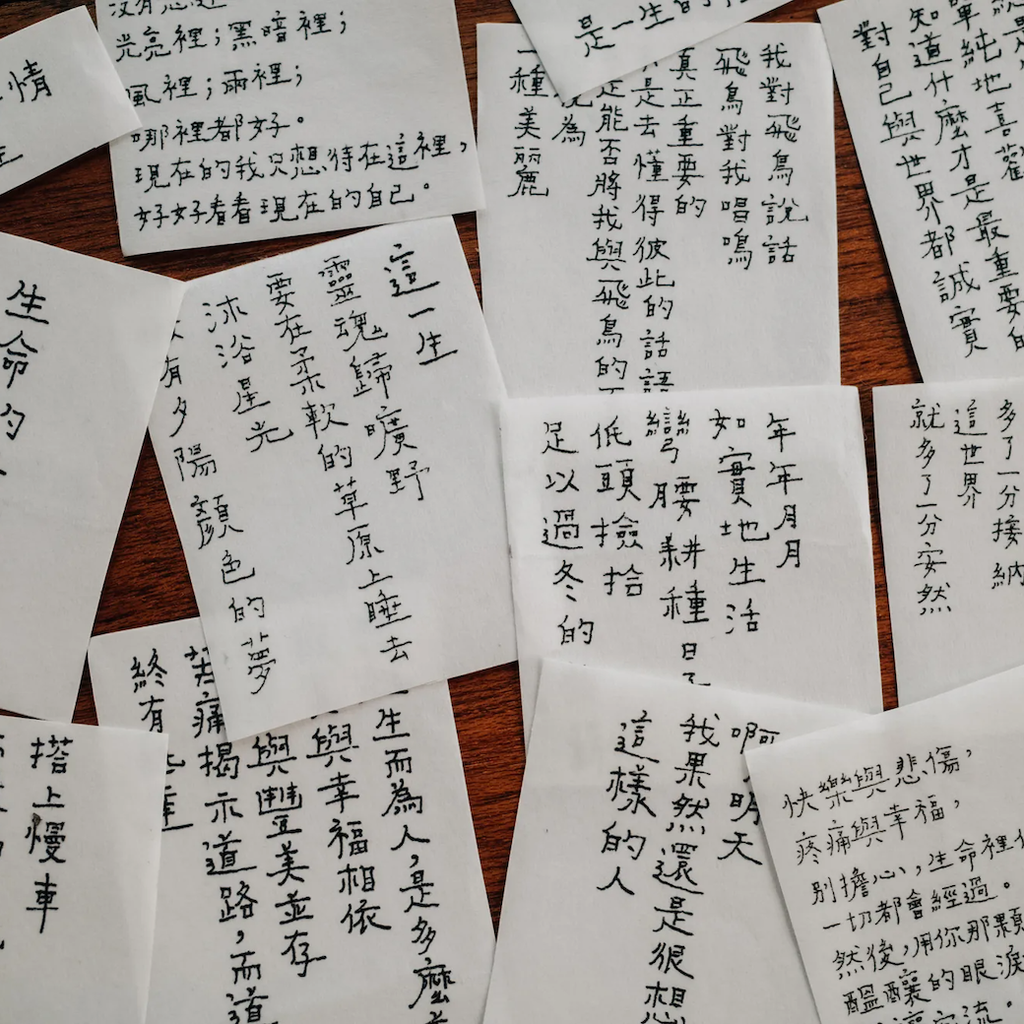 情
光亮裡；黑暗裡；
風裡；雨裡；
哪裡都好。
現在的我只想待在這裡，
好好看看現在的自己。
是一生的
我對飛鳥說話
飛鳥對我唱鳴
真正重要的
是去懂得彼此的話語
是能否將我與飛鳥的
視為
一種美麗
單純地喜歡
知道什麼才是最重要的
對自己與世界都誠實
生命的
這一生
靈魂歸曠野
要在柔軟的草原上睡去
沐浴星光
有夕陽顏色的夢
年年月月
如實地生活
彎腰耕種日子
低頭撿拾
足以過冬的
多了一分接納
這世界
就多了一分安然
搭上慢車
生而為人，是多麼
與幸福相依
與豐美並存
苦痛揭示道路，而道
終有
啊 明天
我果然還是很想
這樣的人
快樂與悲傷，
疼痛與幸福，
別擔心，生命裡
一切都會經過。
然後，用你那顆
醞釀的眼淚
流。